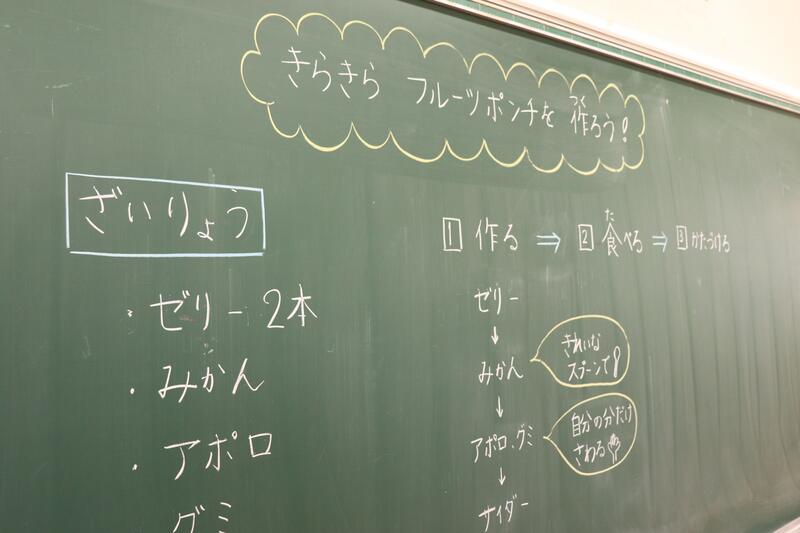 きらきら フルーツポンチを 作ろう!
つく
ざいりょう
・ゼリー 2本
・みかん
・アポロ
グミ
1 作る ⇒ 2 食べる ⇒ 3 かたづける
た
ゼリー
↓
みかん
きれいな
スプーンで
↓
アポロ、グミ
自分の分だけ
さわる
↓
サイダー